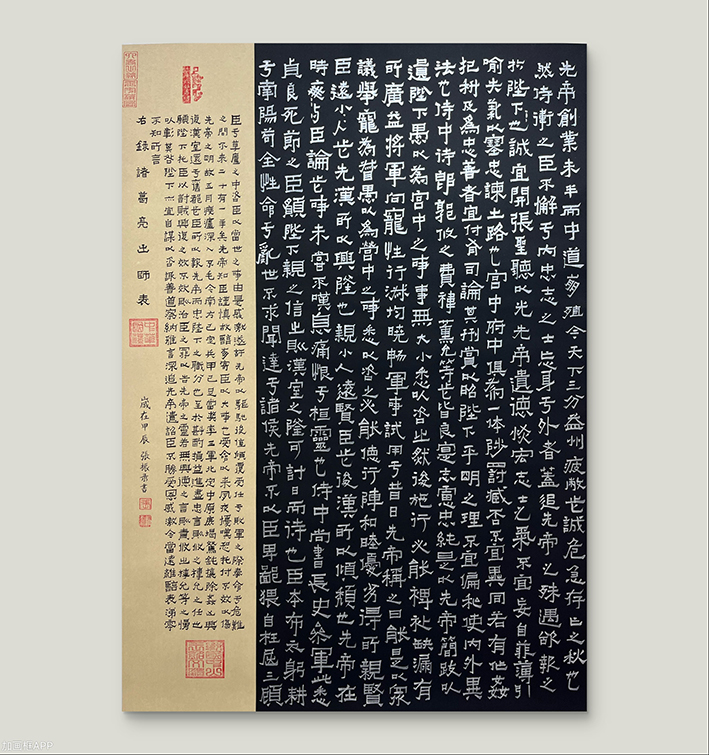 先帝創業未半而中道崩殂今天下三分益州疲敝此誠危急存亡之秋也
然侍衛之臣不懈于內忠志之士忘身于外者蓋追先帝之殊遇欲報之
於陛下也誠宜開張聖聽以光先帝遺德恢宏志士之氣不宜妄自菲薄引
喻失義以塞忠諫之路也宮中府中俱為一體陟罰臧否不宜異同若有作姦
犯科及為忠善者宜付有司論其刑賞以昭陛下平明之理不宜偏私使內外異
法也侍中侍郎郭攸之費禕董允等此皆良實志慮忠純是以先帝簡拔以
遺陛下愚以為宮中之事事無大小悉以咨之然後施行必能裨補缺漏有
所廣益將軍向寵性行淑均曉暢軍事試用于昔日先帝稱之曰能是以衆
議舉寵為督愚以為營中之事悉以咨之必能使行陣和睦優劣得所親賢
臣遠小人此先漢所以興隆也親小人遠賢臣此後漢所以傾頹也先帝在
時每與臣論此事未嘗不嘆息痛恨于桓靈也侍中尚書長史參軍此悉
貞良死節之臣願陛下親之信之則漢室之隆可計日而待也臣本布衣躬耕
于南陽苟全性命于亂世不求聞達于諸侯先帝不以臣卑鄙猥自枉屈三顧
臣于草廬之中咨臣以當世之事由是感激遂許先帝以驅馳後值傾覆受任于敗軍之際奉命于危難
之間爾來二十有一年矣先帝知臣謹慎故臨崩寄臣以大事也受命以來夙夜憂嘆恐托付不效以傷
先帝之明故五月渡瀘深入不毛今南方已定兵甲已足當獎率三軍北定中原庶竭駑鈍攘除姦凶興
復漢室還于舊都此臣所以報先帝而忠陛下之職分也至于斟酌損益進盡忠言則攸之禕允之任也
願陛下托臣以討賊興復之效不效則治臣之罪以告先帝之靈若無興德之言則責攸之禕允等之慢
以彰其咎陛下亦宜自謀以咨諏善道察納雅言深追先帝遺詔臣不勝受恩感激今當遠離臨表涕零
不知所言
右錄諸葛亮出師表
歲在甲辰張振書
加画框APP